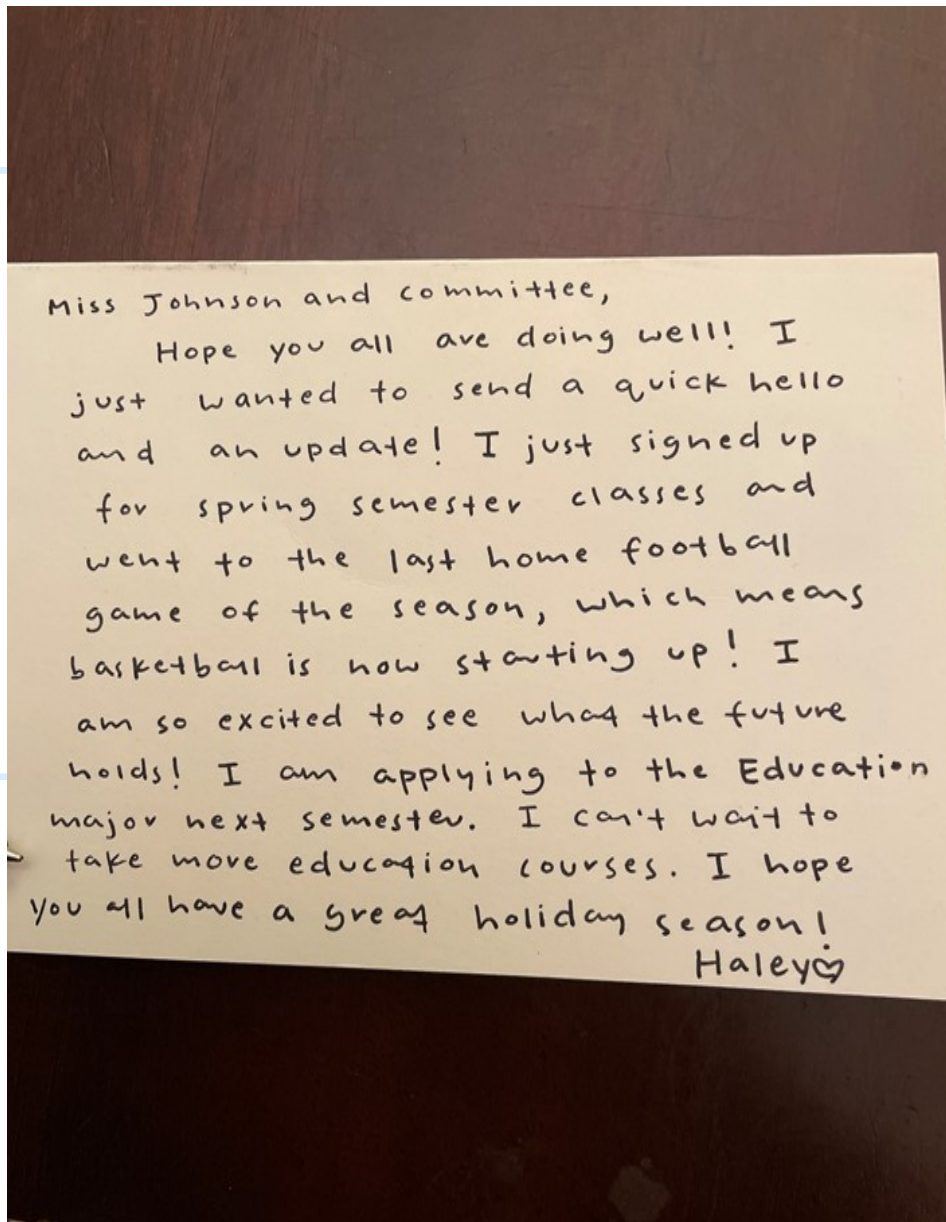 Miss Johnson and committee,
Hope you all are doing well! I
just wanted to send a quick hello
and an update! I just signed up
for spring semester classes and
went to the last home football
game of the season, which means
basketball is now starting up! I
am so excited to see what the future
holds! I am applying to the Education
major next semester. I can't wait to
take more education courses. I hope
you all have a great holiday season!
Haley♡